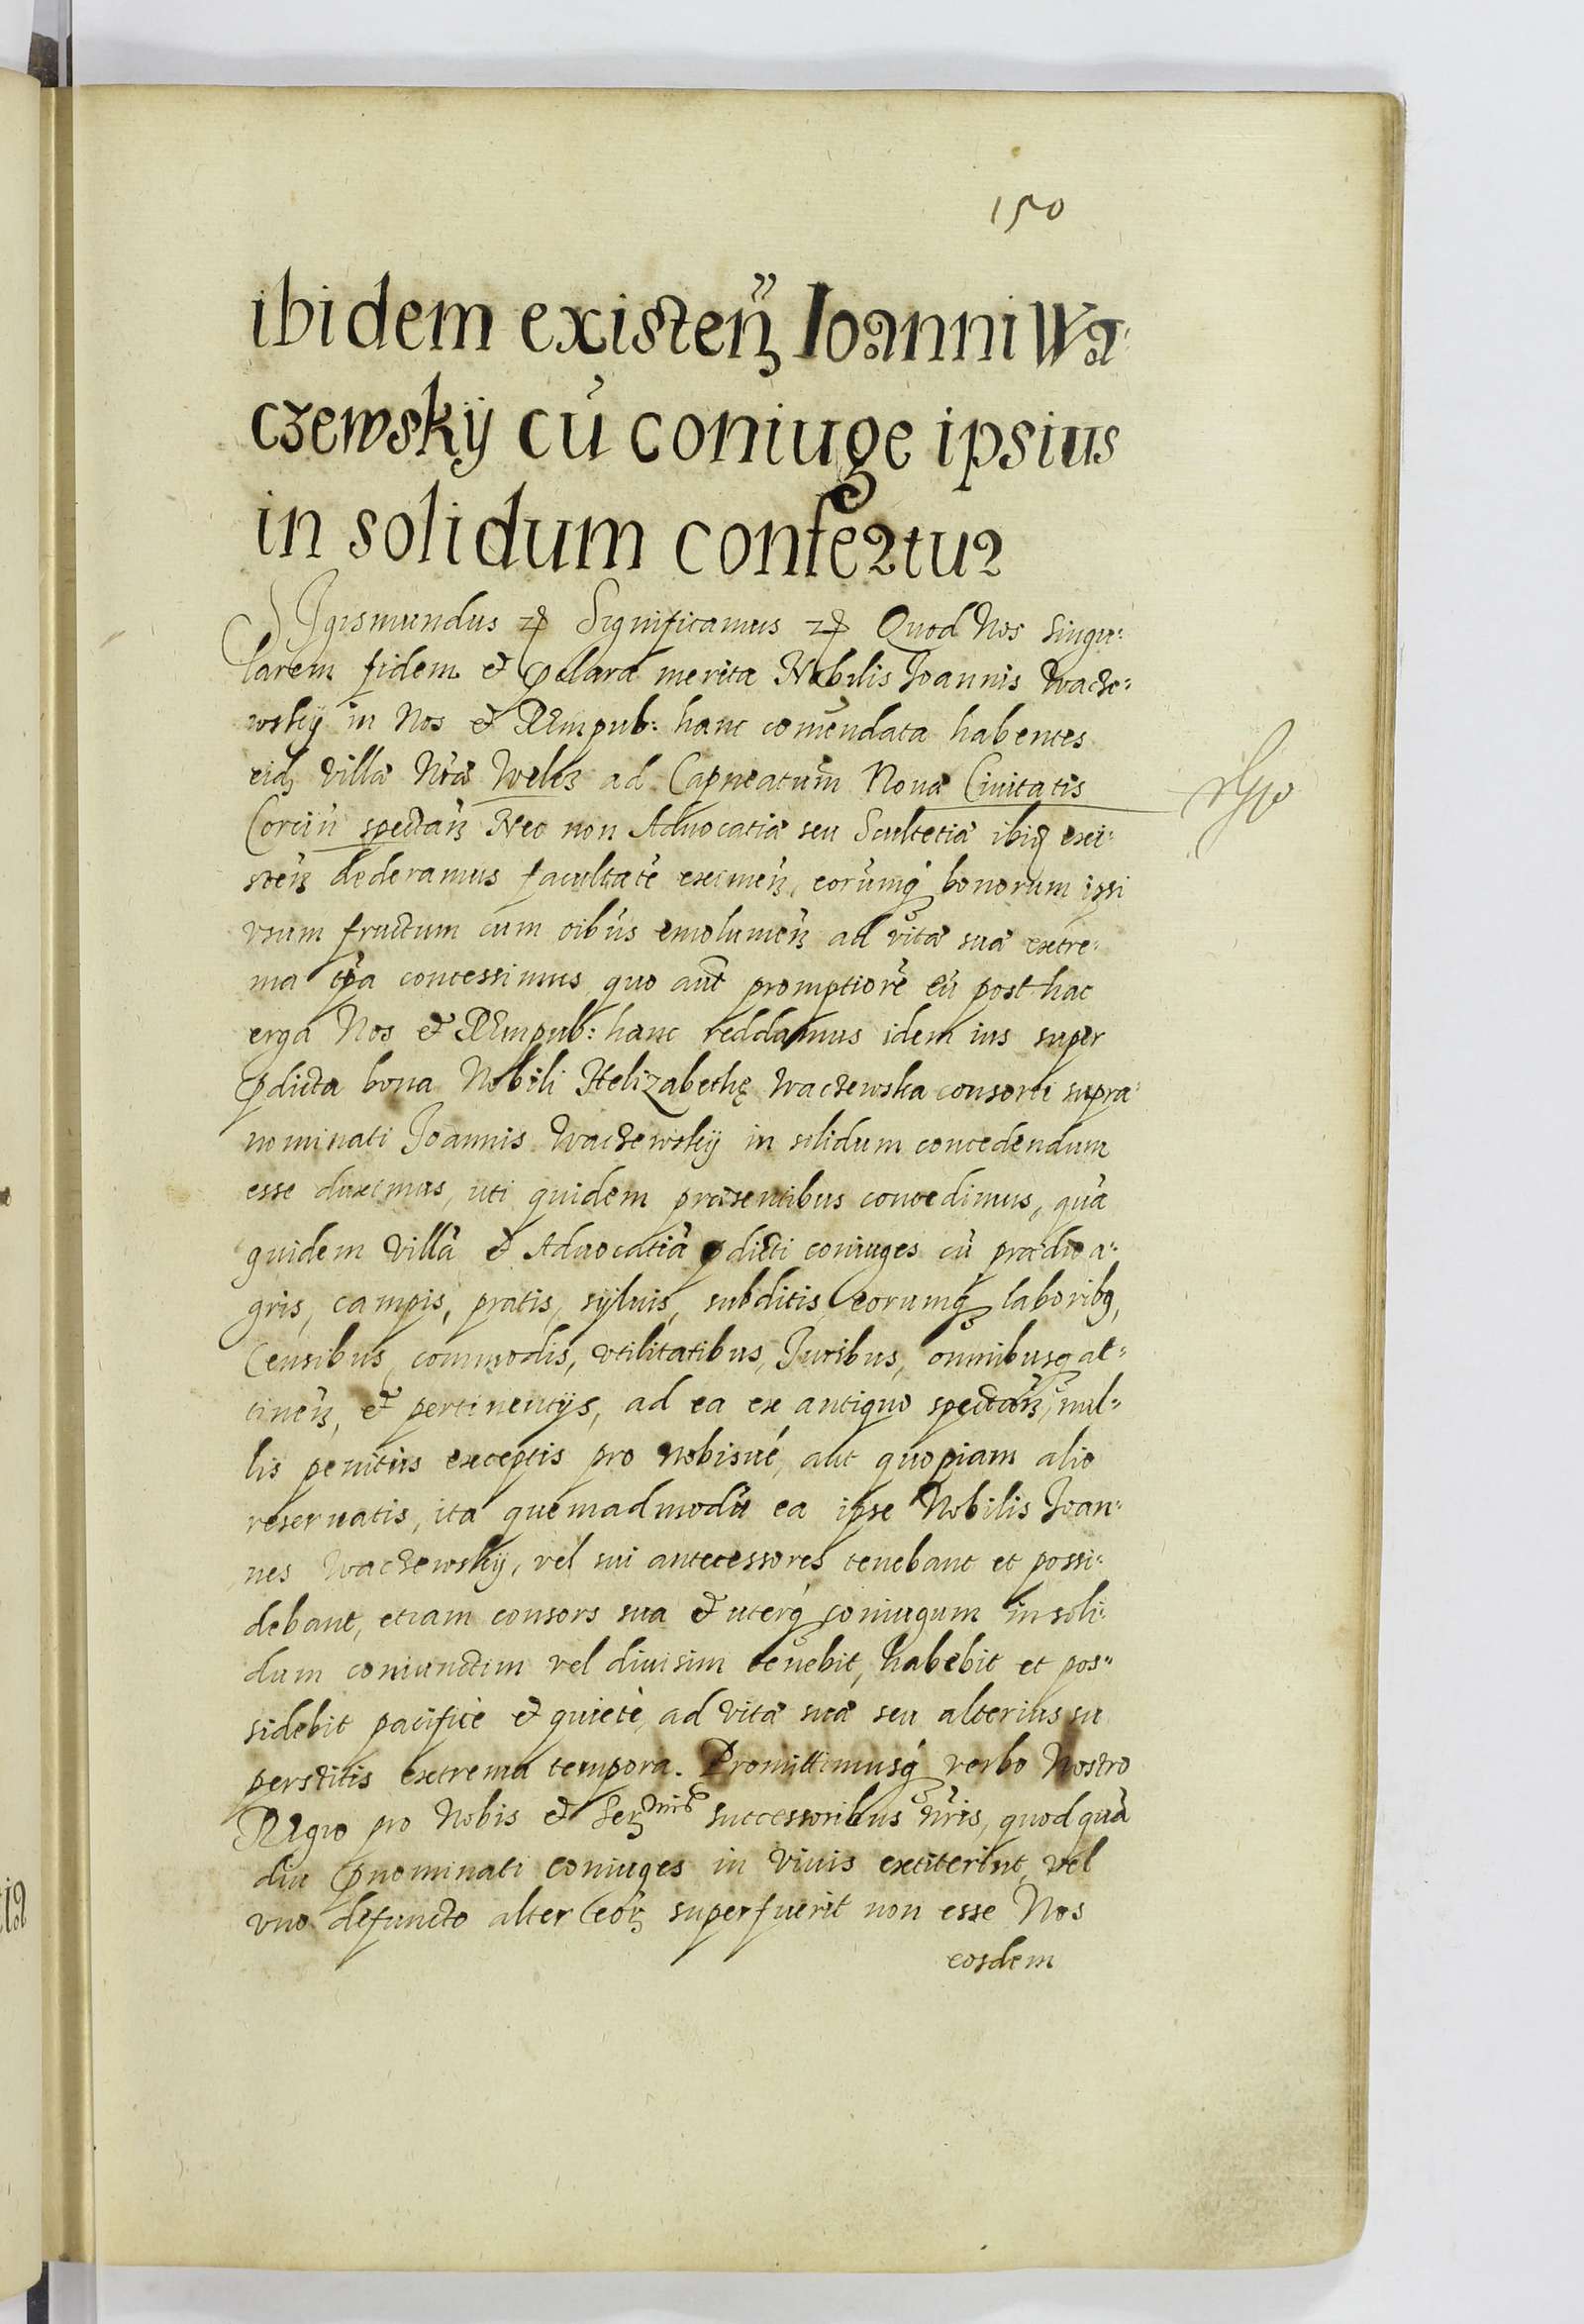 150
ibidem existen̄ Ioanni Wa-
czewskÿ cū coniuge ipsius
in solidum confertur
SIgismundus ꝛc Significamus ꝛc Quod Nos singu:
larem fidem et p̄clara merita Nobilis Joannis Wacze:
wskÿ in Nos et REmpub: hanc com̄endata habentes
eid villā Nrā Welcz ad Capneatum Nouæ Ciuitatis
Corcin̄ spectan̄ Nec non Aduocatiā seu Scultetiā ibid exi:
sten̄ dederamus facultatē eximen̄, eorumq́ bonorum ipsi
vsum fructum cum oib́us emolumen̄ ad vitæ suæ extre:
ma tp̄a concessimus, quo aūt promptiorē eū post hac
erga Nos et REmpub: hanc reddamus idem ius super
p̄dicta bona Nobili Helizabethę Waczewska consorti supra
nominati Joannis Waczewskÿ in solidum concedendum
esse duximus, uti quidem præsentibus concedimus, quā
quidem villā et Aduocatiā p̄dicti coniuges cū prædio a:
gris, campis, pratis, syluis, subditis eorumq́ laboribq,
Censibus, commodis, vtilitatibus, Juribus, omnibusq at=
tinen̄, et pertinentijs, ad ea ex antiquo spectan̄, nul=
lis penitus exceptis pro nobisué, aut quopiam alio
reseruatis, ita quemadmodū ea ipse Nobilis Joan=
nes Waczewskÿ, vel sui antecessores tenebant et possi:
debant, etiam consors sua et uterq́ coniugum in soli:
dum coniunctim vel diuisim tenebit, habebit et pos=
sidebit pacificè et quietè, ad vitæ suæ seu alterius su
perstitis extrema tempora. Promittimusq́ verbo Nostro
REgio pro Nobis et Ser̄mis Successoribus nr̄is, quod quā
diu p̄nominati coniuges in viuis extiterint, vel
vno defuncto alter eor̄ superfuerit non esse Nos
eosdem